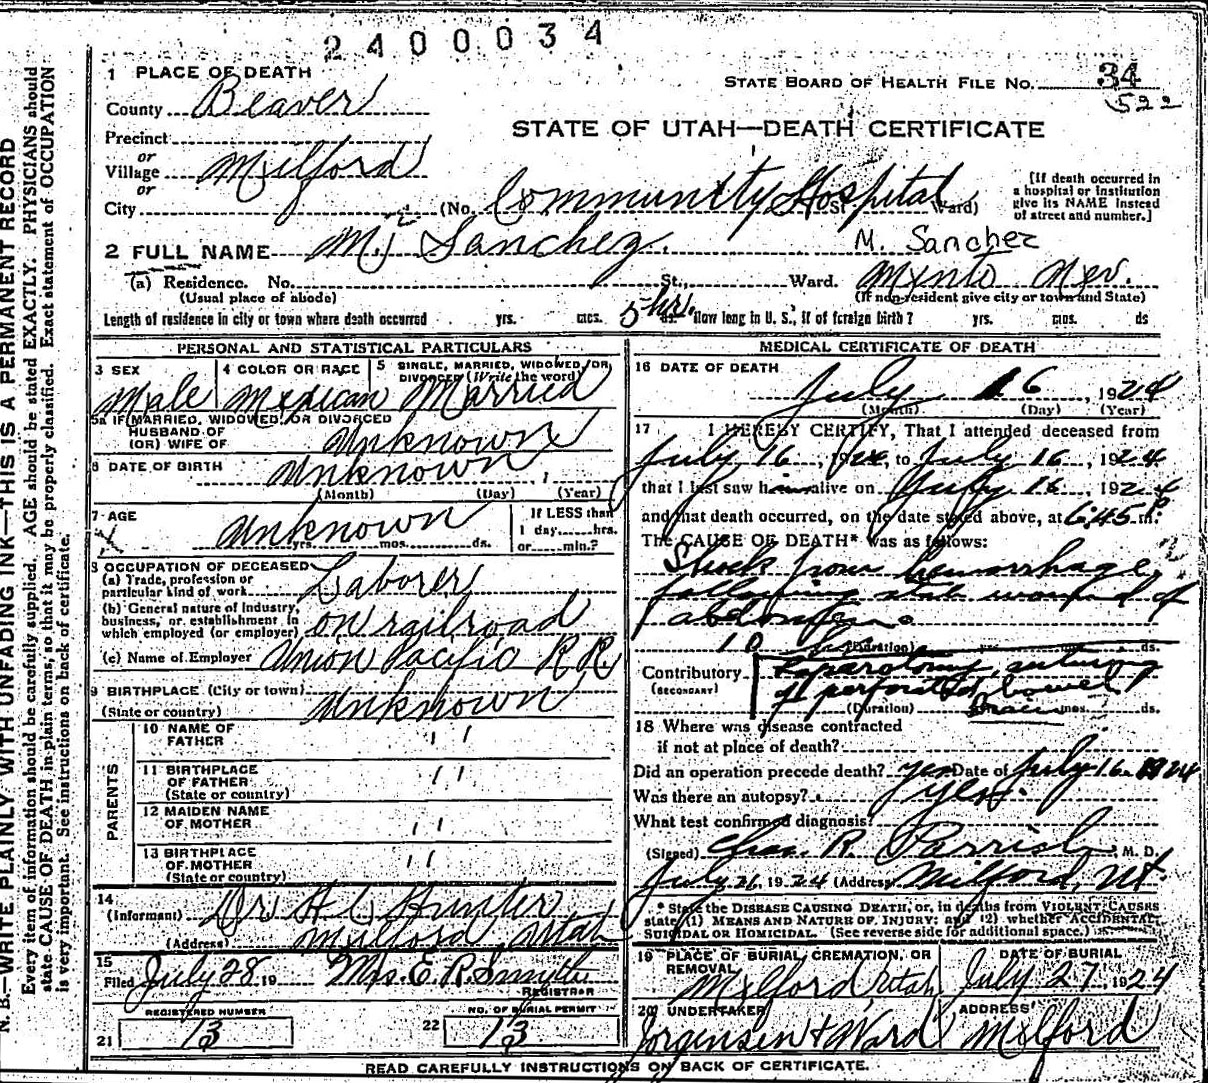 2400034
1 PLACE OF DEATH
STATE BOARD OF HEALTH FILE No. 34
522
County Beaver
STATE OF UTAH—DEATH CERTIFICATE
Precinct
or
Village Milford
or
City (No. Community Hospital St. Ward)
[If death occurred in
a hospital or institution
give its NAME instead
of street and number.]
2 FULL NAME M. Sanchez. M. Sanchez
(a) Residence. No. St., Ward. Nev.
(Usual place of abode) (If non-resident give city or town and State)
Length of residence in city or town where death occurred yrs. mos. 5 hrs. ds. How long in U. S., if of foreign birth? yrs. mos. ds
PERSONAL AND STATISTICAL PARTICULARS
3 SEX Male
4 COLOR OR RACE Mexican
5 SINGLE, MARRIED, WIDOWED, OR
DIVORCED (Write the word) Married
5a IF MARRIED, WIDOWED, OR DIVORCED
HUSBAND OF
(OR) WIFE OF Unknown
6 DATE OF BIRTH Unknown
(Month) (Day) (Year)
7 AGE Unknown
yrs. mos. ds.
If LESS than
1 day hrs.
or min.?
8 OCCUPATION OF DECEASED
(a) Trade, profession or
particular kind of work Laborer
(b) General nature of Industry,
business, or establishment in
which employed (or employer) on railroad
(c) Name of Employer Union Pacific R R
9 BIRTHPLACE (City or town)
(State or country) Unknown
PARENTS
10 NAME OF
FATHER ' '
11 BIRTHPLACE
OF FATHER ' '
(State or country)
12 MAIDEN NAME
OF MOTHER ' '
13 BIRTHPLACE
OF MOTHER ' '
(State or country)
14
(Informant) Dr H C Hunter
(Address) Milford, Utah
15
Filed July 28 19 Mrs. E. R. Smyth
REGISTRAR
REGISTERED NUMBER
21 13
NO. OF BURIAL PERMIT
22 13
MEDICAL CERTIFICATE OF DEATH
16 DATE OF DEATH
July 16, 1924
(Month) (Day) (Year)
17 I HEREBY CERTIFY, That I attended deceased from
July 16, 1924, to July 16, 1924
that I last saw him alive on July 16, 1924
and that death occurred, on the date stated above, at 6:45 P m.
The CAUSE OF DEATH* was as follows:
Shock from hemorrhage
following stab wound of
abdomen.
10 hrs (Duration) yrs. mos. ds.
Contributory Laparotomy, suturing
(SECONDARY) of perforated bowel
(Duration) mos. ds.
18 Where was disease contracted
if not at place of death?
Did an operation precede death? yes Date of July 16 1924
Was there an autopsy? yes.
What test confirmed diagnosis?
(Signed) Chas. R. Parrish, M. D.
July 26, 1924 (Address) Milford, Ut
* State the DISEASE CAUSING DEATH, or, in deaths from VIOLENT CAUSES
state (1) MEANS AND NATURE OF INJURY; and (2) whether ACCIDENTAL,
SUICIDAL OR HOMICIDAL. (See reverse side for additional space.)
19 PLACE OF BURIAL, CREMATION, OR
REMOVAL
Milford, Utah
DATE OF BURIAL
July 27, 1924
20 UNDERTAKER
Jorgensen & Ward
ADDRESS
Milford
READ CAREFULLY INSTRUCTIONS ON BACK OF CERTIFICATE.
N. B.—WRITE PLAINLY WITH UNFADING INK—THIS IS A PERMANENT RECORD
Every item of information should be carefully supplied. AGE should be stated EXACTLY. PHYSICIANS should
state CAUSE OF DEATH in plain terms, so that it may be properly classified. Exact statement of OCCUPATION
is very important. See instructions on back of certificate.